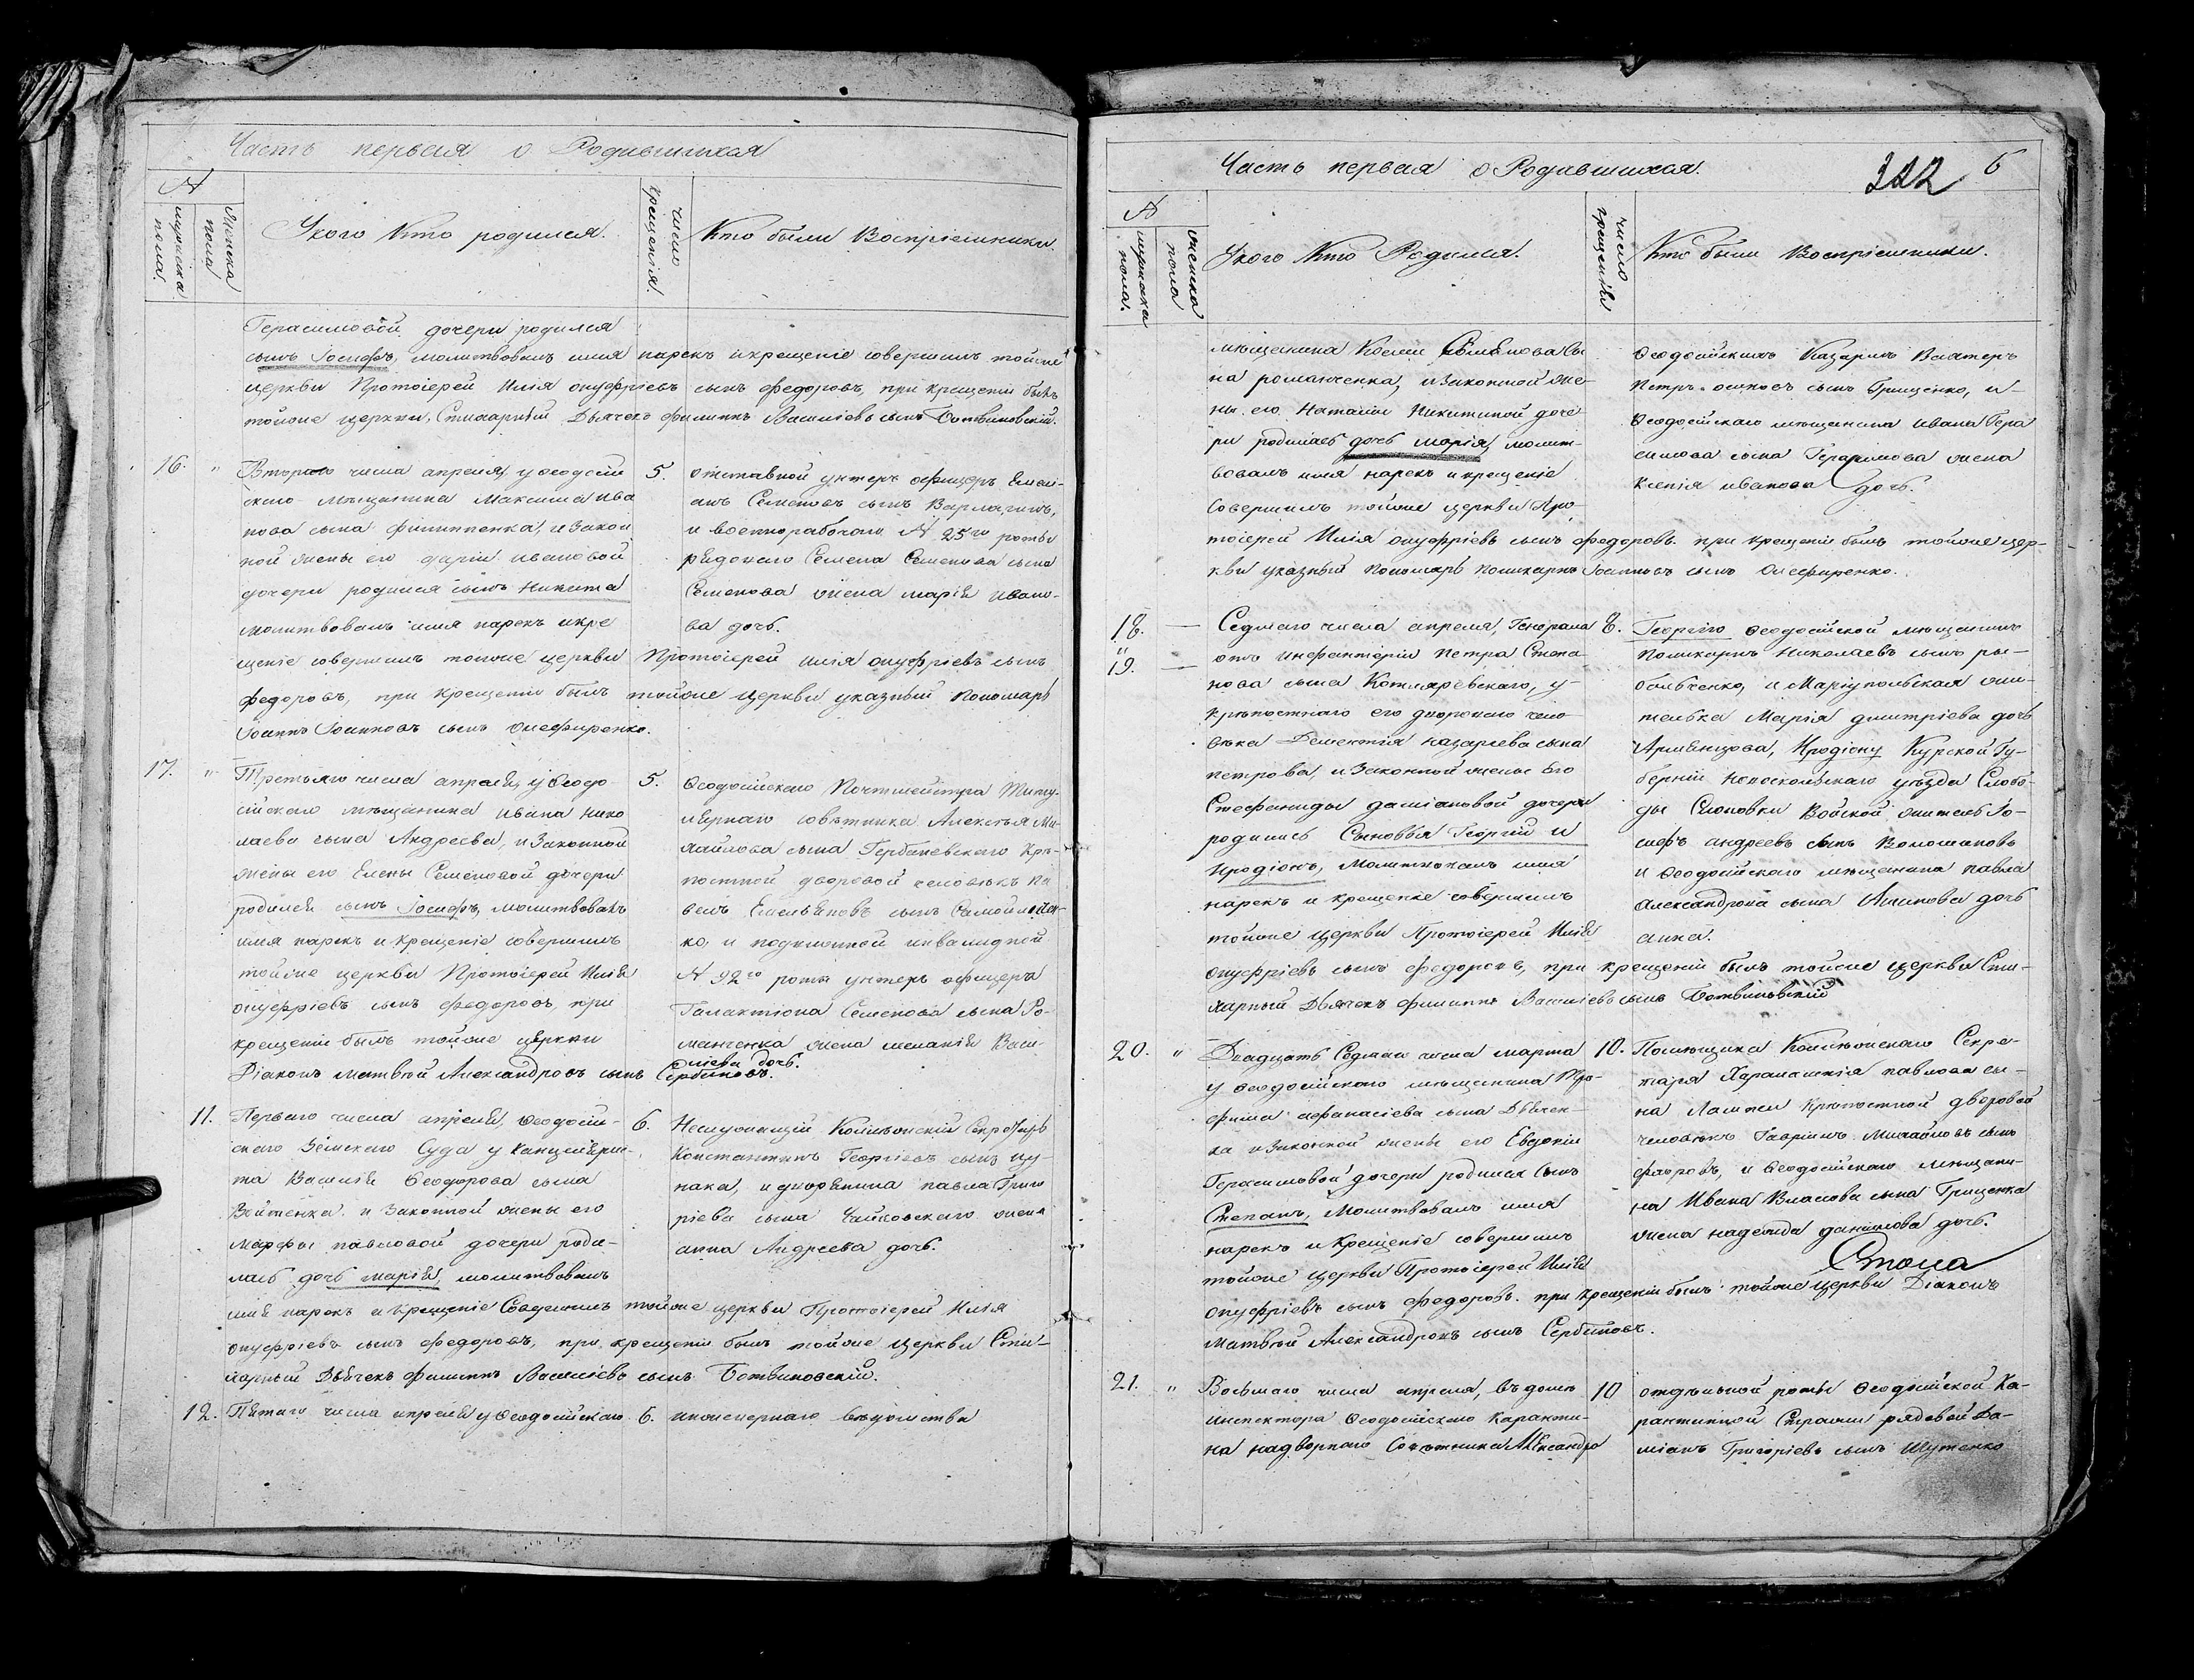 Часть первая о Родившихся
№
мужеска пола.
женска пола
У кого кто родился.
число крещенія.
Кто были Воспріемники.
Герасимовой дочери родился
сынъ Іосифъ, молитвовалъ имя нарекъ и крещеніе совершилъ тойже
церкви Протоіерей Илія онуфріевъ сынъ федоровъ, при крещеніи былъ
тойже церкви, Стихарный Дьячекъ филиппъ Василіевъ сынъ Ботвиновскій.
16. " Втораго числа апреля, у Ѳеодосій
скаго мѣщанина Максима ива
нова сына филиппенка, и закон
ной жены его дарьи ивановой
дочери родился сынъ Никита
молитвовалъ имя нарекъ и кре
щеніе совершилъ тойже церкви Протоіерей Илія онуфріевъ сынъ
федоровъ, при крещеніи былъ тойже церкви указный пономарь
Іоаннъ Іоанновъ сынъ Олефиренко.
5. отставной унтеръ офицеръ Емель-
анъ Семеновъ сынъ Варлагинъ,
и военнорабочаго № 25го роты
рядоваго Семена Семенова сына
Семенова жена марія ивано-
ва дочь.
17. " Третьяго числа апреля, у Ѳеодо-
сійскаго мѣщанина ивана нико
лаева сына Андреева, и Законной
жены его Елены Семеновой дочери
родился сынъ Іосифъ, молитвовалъ
имя нарекъ и крещеніе совершилъ
тойже церкви Протоіерей Илія
онуфріевъ сынъ федоровъ, при
крещеніи былъ тойже церкви
Діаконъ матвѣй Александровъ сынъ Сербиновъ.
5. Ѳеодосійскаго Почтмейстра Титу-
лярнаго совѣтника Алексѣя Ми-
хайлова сына Гербаневскаго крѣ-
постной дворовой человѣкъ па
велъ Емельяновъ сынъ Самойлен-
ко, и подвижной инвалидной
№ 92го роты унтеръ офицера
Галактіона Семенова сына Ро-
манченка жена меланія Васи-
ліева дочь.
11. Перваго числа апреля, Ѳеодосій-
скаго Земскаго Суда у Канцеляри-
ста Василія Ѳеодорова сына
Войтенка и Законной жены его
марфы павловой дочери роди-
лась дочь марія, молитвовалъ
имя нарекъ и крещеніе Совершилъ тойже церкви Протоіерей Илія
онуфріевъ сынъ федоровъ, при крещеніи былъ тойже церкви Сти-
харный Дьячекъ филиппъ Василіевъ сынъ Ботвиновскій.
6. Неслужащій Колежскій Секретарь
Константинъ Георгіевъ сынъ цу-
нака, и дворянина павла Григо
ріева сына Чайковскаго жена
анна Андреева дочь.
12. Пятаго числа апреля у Ѳеодосійскаго
6. инженернаго вѣдомства
Часть первая о Родившихся.
322 6
№
мужеска пола.
женска пола
У кого кто Родился.
число крещенія
Кто были Воспріемники.
мѣщанина Козьми Сы
на романченка, и законной же-
ны его Наталіи Никитиной доче
ри родилась дочь марія, молит-
вовалъ имя нарекъ и крещеніе
Совершилъ тойже церкви Про-
тоіерей Илія онуфріевъ сынъ федоровъ. при крещеніи былъ тойже цер-
кви указный пономарь Іоаннъ Іоанновъ сынъ Олефиренко.
Ѳеодосійскимъ
Петръ осиповъ сынъ Грищенко, и
Ѳеодосійскаго мѣщанина ивана Гера
симова сына Герасимова жена
Ксенія иванова дочь.
18. — Седмаго числа апреля, Генерала
"
19. — отъ инфантеріи Петра Степа-
нова сына Котляревскаго, у
крѣпостнаго его двороваго чело-
вѣка Дементія назарьева сына
петрова, и Законной жены его
Стефаниды даміановой дочери
родились Сыновья Георгій и
Иродіонъ, молитвовалъ имя
нарекъ и крещеніе совершилъ
тойже церкви Протоіерей Илія
онуфріевъ сынъ федоровъ, при крещеніи былъ тойже церкви Сти-
харный Дьячекъ филиппъ Василіевъ сынъ Ботвиновскій
8. Георгію Ѳеодосійской мѣщанинъ
поликарпъ Николаевъ сынъ ры-
бавченко, и Маріупольская жи-
телька Марія дмитріева дочь
Арменцова, Иродіону Курской Гу-
берніи Новооскольскаго уѣзда Слобо-
ды житель Іо-
сифъ андреевъ сынъ Волошиновъ
и Ѳеодосійскаго мѣщанина павла
александрова сына дочь
анна.
20. " Двадцать Седмаго числа марта
у Ѳеодосійскаго мѣщанина Тро-
фима афанасіева сына Дьячен-
ка и законной жены его Евдокіи
Герасимовой дочери родился сынъ
Степанъ, Молитвовалъ имя
нарекъ и Крещеніе совершилъ
тойже церкви Протоіерей Илія
онуфріевъ сынъ федоровъ. при крещеніи былъ тойже церкви Діаконъ
матвѣй Александровъ сынъ Сербиновъ.
10. Помѣщика Колежскаго Секре-
таря Харалампія павлова сы-
на Лампси крѣпостной дворовой
человѣкъ Гавріилъ Михайловъ сынъ
флоровъ, и Ѳеодосійскаго мѣщани-
на Ивана Власова сына Грищенка
жена надежда данилова дочь.
21. " Восьмаго числа апреля, въ домѣ
инспектора Ѳеодосійскаго каранти-
на надворнаго Совѣтника Александра
10 отдѣльной роты Ѳеодосійской Ка-
рантинной Стражи рядовой Да-
міанъ Григоріевъ сынъ Шутенко